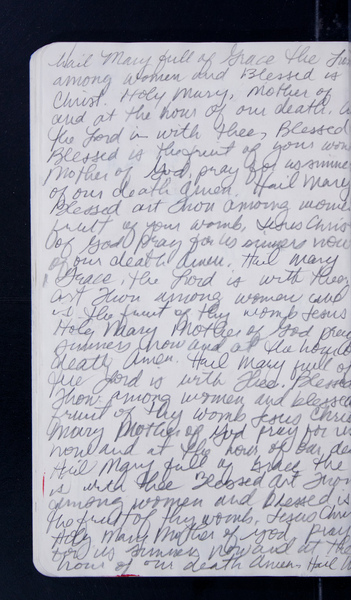 Hail Mary full of Grace the
among women and Blessed is
Christ. Holy Mary, Mother of
and at the hour of our death.
the Lord is with thee, Blessed
Blessed is the fruit of your
Mother of God, pray for us sinners
of our death Amen. Hail Mary
Blessed art Thou among women
fruit of your womb, Jesus Christ
of God pray for us sinners now
of our death Amen. Hail Mary
Grace, the Lord is with thee
art Thou among women and
is the fruit of thy womb Jesus
Holy Mary Mother of God pray
sinners now and at the hour
death, Amen. Hail Mary full of
the Lord is with Thee. Blessed
Thou among women and blessed
fruit of thy womb Jesus Christ
Mary Mother of God pray for us
now and at the hour of our
Hail Mary full of Grace the
is with thee Blessed art Thou
among women and Blessed is
the fruit of thy womb, Jesus Christ
Holy Mary Mother of God, pray
for us sinners now and at the
hour of our death Amen. Hail